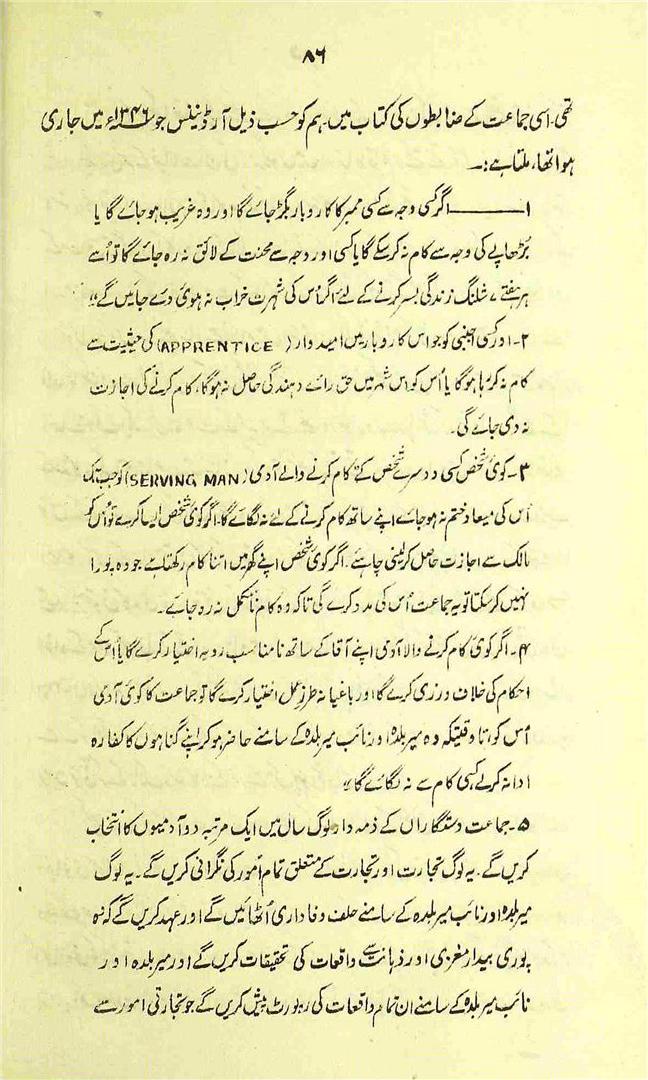 ۸۶
تھی۔ اسی جماعت کے ضابطوں کی کتاب میں ہم کو حسب ذیل آرڈیننس جو ۱۳۴۶ء میں جاری
ہوا تھا، ملتا ہے:۔
۱——— اگر کسی وجہ سے کسی ممبر کا کاروبار بگڑ جائے گا اور وہ غریب ہو جائے گا یا
بڑھاپے کی وجہ سے کام نہ کر سکے گا یا کسی اور وجہ سے محنت کے لائق نہ رہ جائے گا تو اُسے
ہر ہفتے ۷ شلنگ زندگی بسر کرنے کے لئے اگر اُس کی شہرت خراب نہ ہوئی دے جائیں گے"
۲۔ اور کسی اجنبی کو جو اس کاروبار میں امیدوار (APPRENTICE) کی حیثیت سے
کام نہ کر رہا ہوگا یا اُس کو اس شہر میں حق رائے دہندگی حاصل نہ ہوگا، کام کرنے کی اجازت
نہ دی جائے گی۔
۳۔ کوئی شخص کسی دوسرے شخص کے کام کرنے والے آدمی (SERVING MAN) کو جب تک
اُس کی میعاد ختم نہ ہو جائے اپنے ساتھ کام کرنے کے لئے نہ لگائے گا۔ اگر کوئی شخص ایسا کرے تو اُس کو
مالک سے اجازت حاصل کر لینی چاہئے۔ اگر کوئی شخص اپنے گھر میں اتنا کام رکھتا ہے جو وہ پورا
نہیں کر سکتا تو یہ جماعت اُس کی مدد کرے گی تاکہ وہ کام نامکمل نہ رہ جائے۔
۴۔ اگر کوئی کام کرنے والا آدمی اپنے آقا کے ساتھ نامناسب رویہ اختیار کرے گا یا اُس کے
احکام کی خلاف ورزی کرے گا اور باغیانہ طرزِ عمل اختیار کرے گا تو جماعت کا کوئی آدمی
اُس کو تا وقتیکہ وہ میر بلدہ اور نائب میر بلدہ کے سامنے حاضر ہو کر اپنے گناہوں کا کفارہ
ادا نہ کر لے کسی کام سے نہ لگائے گا"
۵۔ جماعت دستکاراں کے ذمہ دار لوگ سال میں ایک مرتبہ دو آدمیوں کا انتخاب
کریں گے۔ یہ لوگ تجارت اور تجارت کے متعلق تمام اُمور کی نگرانی کریں گے۔ یہ لوگ
میر بلدہ اور نائب میر بلدہ کے سامنے حلف وفاداری اُٹھائیں گے اور عہد کریں گے کہ وہ
پوری بیدار مغزی اور ذہانت سے واقعات کی تحقیقات کریں گے اور میر بلدہ اور
نائب میر بلدہ کے سامنے ان تمام واقعات کی رپورٹ پیش کریں گے جو تجارتی امور سے